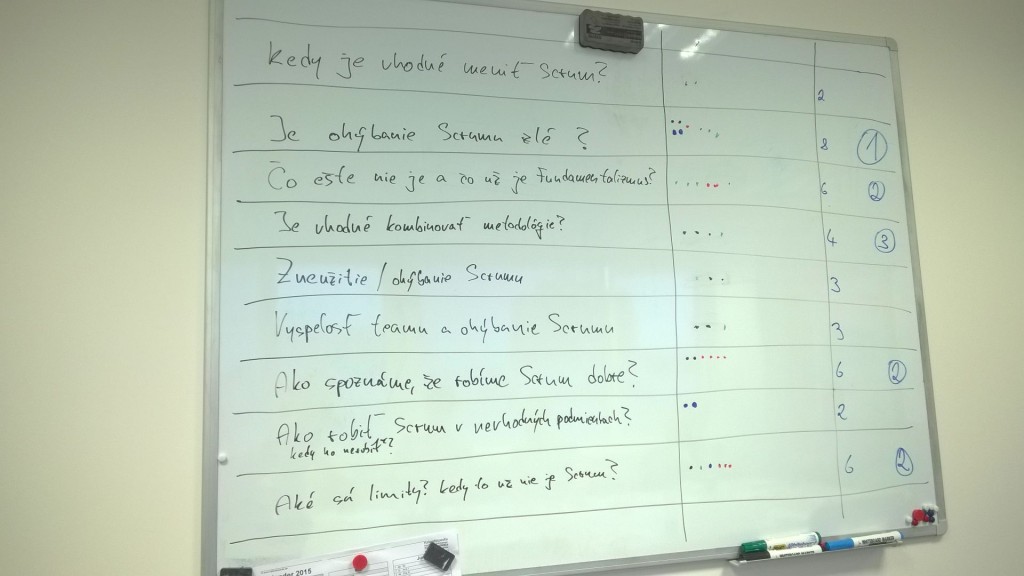 Kedy je vhodné meniť Scrum? 2
Je ohýbanie Scrumu zlé ? 8 1
Čo ešte nie je a čo už je Fundamentalizmus? 6 2
Je vhodné kombinovať metodológie? 4 3
Zneužitie / ohýbanie Scrumu 3
Vyspelosť teamu a ohýbanie Scrumu 3
Ako spoznáme, že robíme Scrum dobre? 6 2
Ako robiť Scrum v nevhodných podmienkach? 2
kedy ho nerobiť?
Aké sú limity? kedy to už nie je Scrum? 6 2
2015